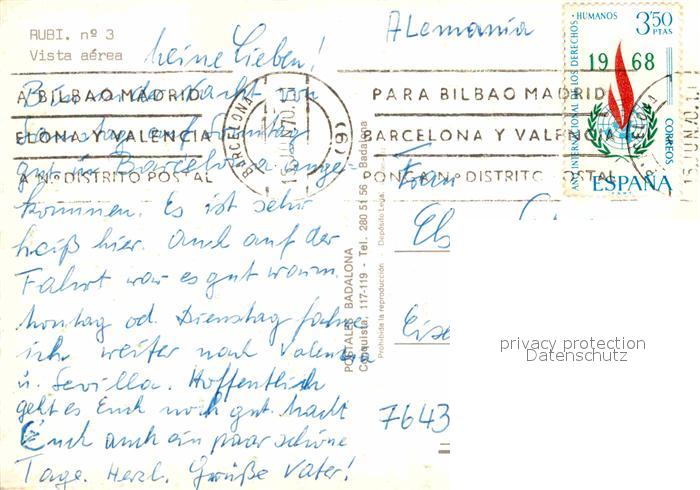 RUBI. nº 3
Vista aérea
Alemania
Meine Lieben!
Bin in der Nacht von
Samstag auf Sonntag
gut in Barcelona ange-
kommen. Es ist sehr
heiß hier. Auch auf der
Fahrt war es gut warm.
Montag od. Dienstag fahre
ich weiter nach Valencia
u. Sevilla. Hoffentlich
geht es Euch noch gut. Macht
Euch auch ein paar schöne
Tage. Herzl. Grüße Vater!
A BILBAO MADRID
ELONA Y VALENCIA
A Nº DISTRITO POSTAL
BARCELONA
(6)
PARA BILBAO MADRID
BARCELONA Y VALENCIA
PONGA Nº DISTRITO POSTAL
POSTALES BADALONA
Conquista, 117-119 - Tel. 280 51 56 Badalona
Prohibida la reproducción - Depósito Legal
AÑO INTERNACIONAL DE LOS DERECHOS HUMANOS
3'50
PTAS
1968
CORREOS
ESPAÑA
Frau
Els
Eise
7643
privacy protection
Datenschutz